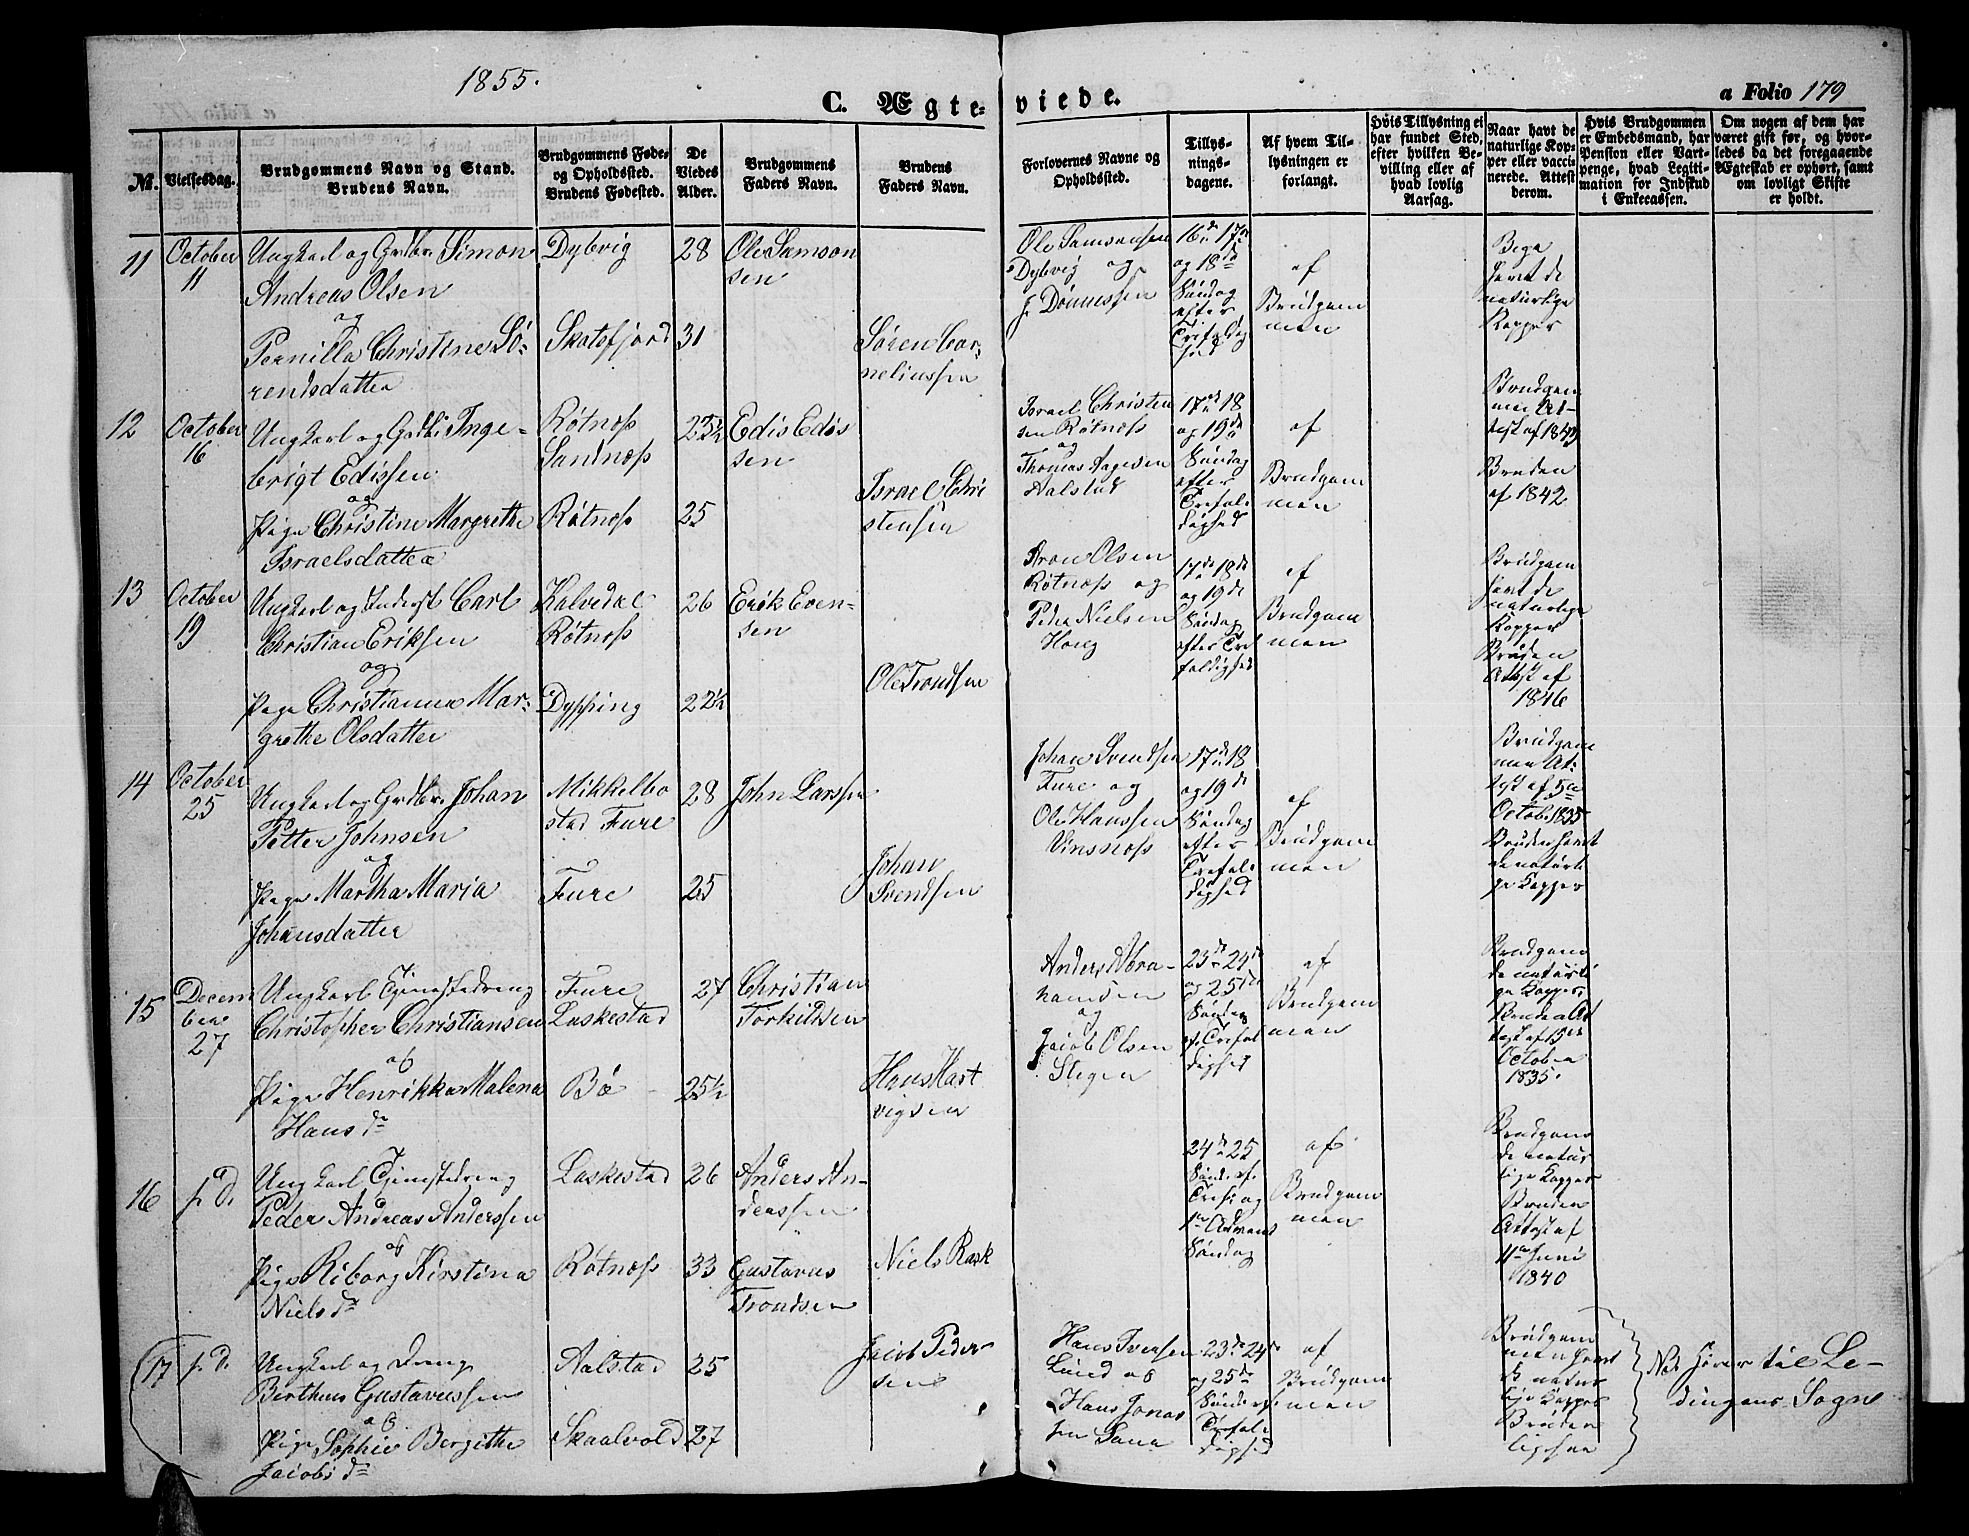 1855.
C. Ægteviede.
a Folio 179
No.
Vielsesdag.
Brudgommens Navn og Stand.
Brudens Navn.
Brudgommens Føde-
og Opholdssted.
Brudens Fødested.
De
Viedes
Alder.
Brudgommens
Faders Navn.
Brudens
Faders Navn.
Forlovernes Navne og
Opholdssted.
Tillys-
nings-
dagene.
Af hvem Til-
lysningen er
forlangt.
Hvis Tillysning ei
har fundet Sted,
efter hvilken Be-
villing eller af
hvad lovlig
Aarsag.
Naar havt de
naturlige Kop-
per eller vacci-
nerede. Attest
derom.
Hvis Brudgommen
er Embedsmand, har
Pension eller Vart-
penge, hvad Legiti-
mation for Indskud
i Enkecassen.
Om nogen af dem har
været gift før, og hvor-
ledes da det foregaaende
Ægteskab er ophørt, samt
om lovligt Skifte
er holdt.
11
October
11
Ungkarl og Gaardbr. Simon
Andreas Olsen
og
Pernilla Christine Sö-
rendsdatter
Dybvig
Skotsfjord
28
31
Ole Samson
sen
Søren Cor-
neliussen
Ole Samsonsen
Dybvig og
J. Dönnessen
16de 17de
og 18de
Søndag
efter
Trefoldig
hed
af
Brudgom
men
Bege
havt de
naturlige
Kopper
12
October
16
Ungkarl og Gaardbr Inge-
brigt Edissen
og
Pige Christine Margrethe
Israelsdatter
Røtnæss
Sandnæss
Røtnæss
25
Edis Edis
sen
Israel Chri
stensen
Israel Christen
sen Røtnæss
og
Thomas Aagesen
Aalstad
17de 18
og 19de
Søndag
efter
Trefol-
dighed
af
Brudgom
men
Brudgom
men At-
test af 1842
Bruden
af 1842
13
October
19
Ungkarl og Inderst Carl
Christian Eriksen
og
Pige Christianna Mar-
grethe Olsdatter
Kalvedal
Røtnæss
Dypping
26
22½
Erik Even-
sen
Ole Trondsen
Aron Olsen
Røtnæss og
Peder Nielsen
Houg
17de 18de
og 19de
Søndag
efter Tre
foldighed
af
Brudgom
men
Brudgom
havt de
naturlige
Kopper
Bruden
Attest af
1846
14
October
25
Ungkarl og Gaardbr. Johan
Petter Johnsen
og
Pige Martha Maria
Johansdatter
Mikkelbo
stad Fure
Fure
28
25
John Larssen
Johan
Svendsen
Johan Svendsen
Fure og
Ole Hanssen
Vinsnæss
17de 18
og 19de
Søndag
efter
Trefol-
dighed
af
Brudgom
men
Brudgom
men At-
test af 5te
Octob. 1835
Bruden havt
de naturli
ge Kopper
15
Decem
ber
27
Ungkarl Tjenestedreng
Christopher Christiansen
og
Pige Henrikka Malena
Hansdr
Fure
Laskestad
Bø
27
25½
Christian
Torkildsen
Hans Hart
vigsen
Anders Abra-
hamsen
og
Jacob Olsen
Stegen
23de 24de
og 25de
Søndag
ef. Trefol
dighed
af
Brudgom
men
Brudgom
de naturli
ge Kopper,
Brudens At
test af 19de
October
1835.
16
s. D.
Ungkarl Tjenestedreng
Peder Andreas Anderssen
og
Pige Riborg Kirstina
Nielsdr
Laskestad
Røtnæss
26
33
Anders An-
derssen
Gustavus
Trondsen
Niels Rask
24de 25
Sønd. ef.
Tref. og
1ste Advents
Søndag
af
Brudgom
men
Brudgom
de natur
lige Kopper
Bruden
Attest af
11te Juni
1840
17
s. D.
Ungkarl og Dreng
Berthus Gustavussen
og
Pige Sophie Bergithe
Jacobsdr
Aalstad
Skaalvold
25
27
Jacob Peder
sen
Hans Iversen
Lund og
Hans Jonas
sen
23de 24de
og 25de
Trefol-
dighed
af
Brudgom
men
Brudgom
men havt
de natur
lige Kopper
Bruden
ligesaa
NB. hører til Lö-
dingens Sogn